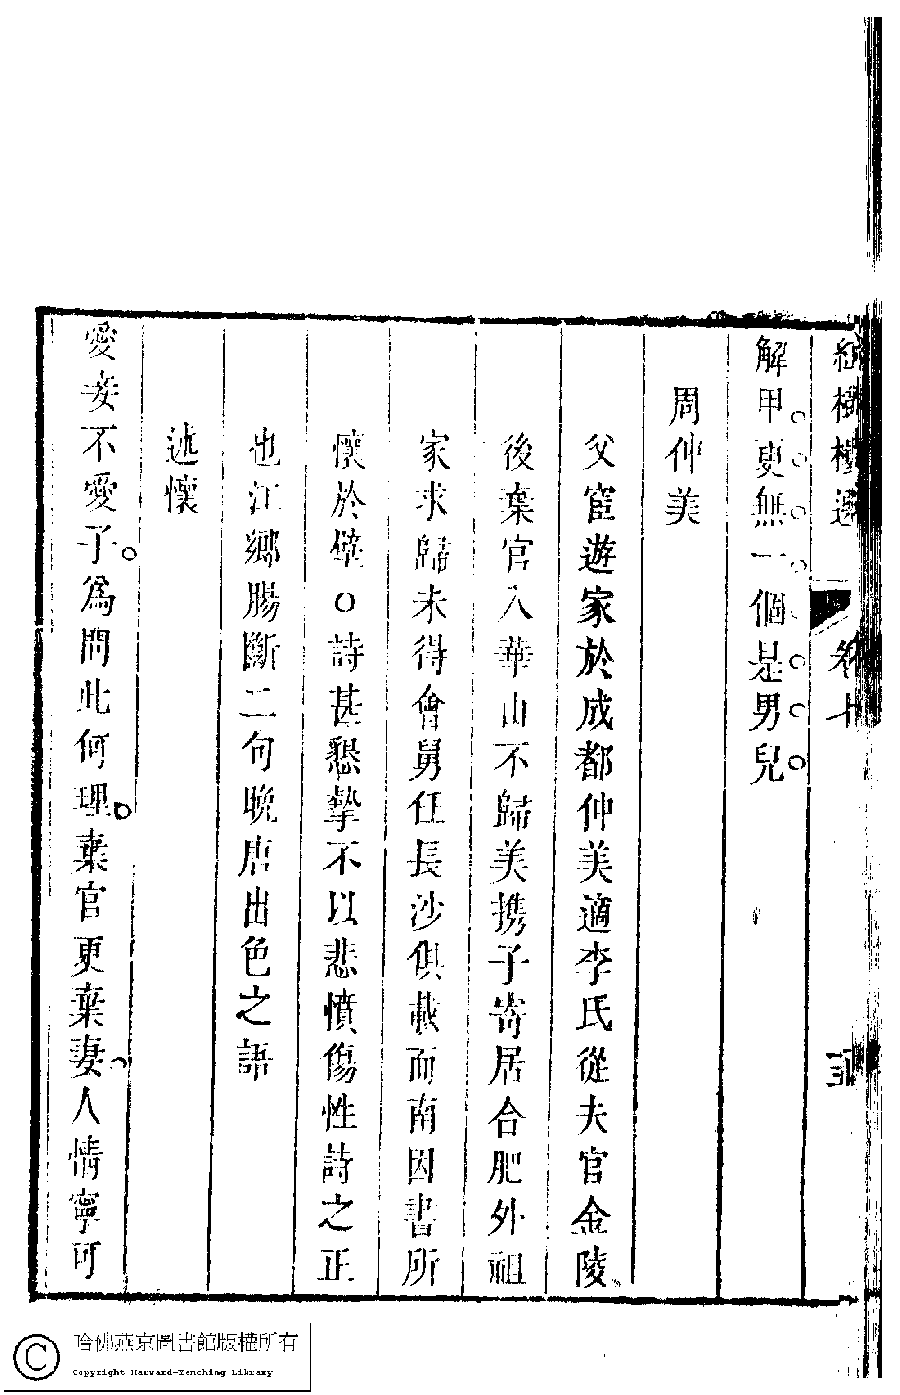 紅樹樓選 卷十
解甲更無一個是男兒
周仲美
父宦遊家於成都仲美適李氏從夫官金陵
後棄官入華山不歸美携子寄居合肥外祖
家求歸未得會舅任長沙俱載而南因書所
懷於壁○詩甚懇摯不以悲憤傷性詩之正
也江鄉腸斷二句晚唐出色之語
述懷
愛妾不愛子爲問此何理棄官更棄妻人情寧可
哈佛燕京圖書館版權所有
Copyright Harvard-Yenching Library